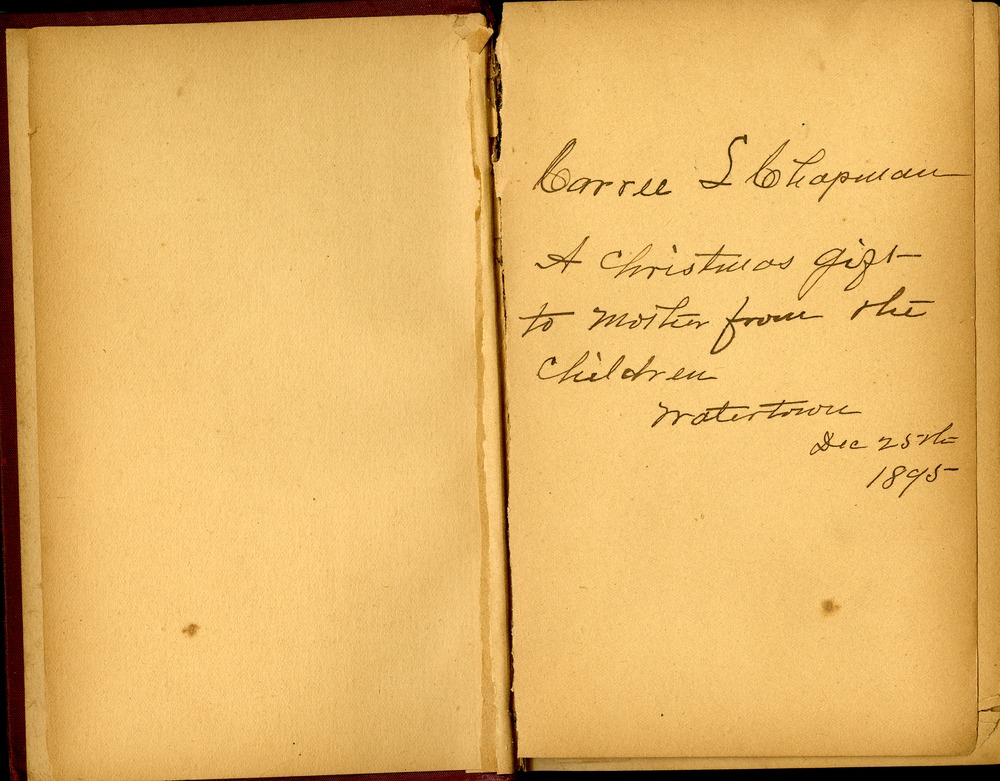 Carrie L Chapman
A Christmas gift
to Mother from the
Children
Watertown
Dec 25th
1895